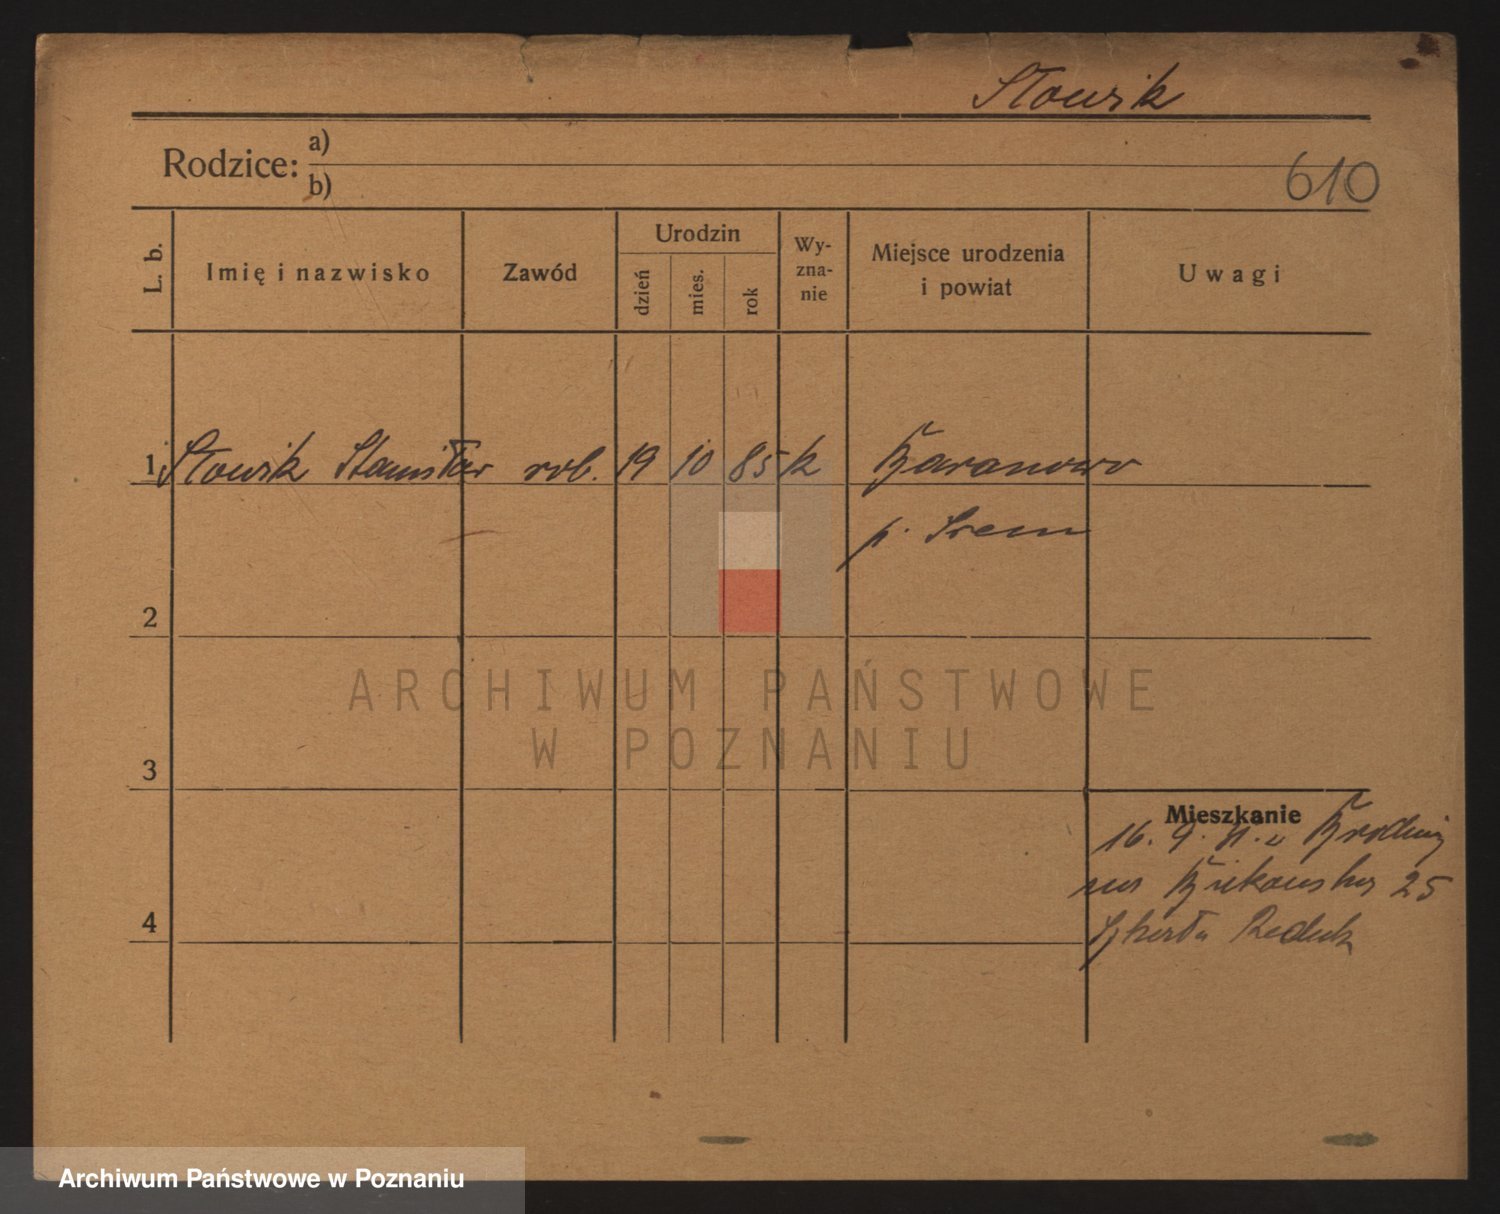 Słowik
Rodzice: a)
b)
610
L. b.
Imię i nazwisko
Zawód
Urodzin
dzień
mies.
rok
Wy-
zna-
nie
Miejsce urodzenia
i powiat
Uwagi
1 Słowik Stanisław rob. 19 10 85 k Baranowo
p. Śrem
2
3
4
Mieszkanie
16. 9.
25
ARCHIWUM PAŃSTWOWE
W POZNANIU
Archiwum Państwowe w Poznaniu